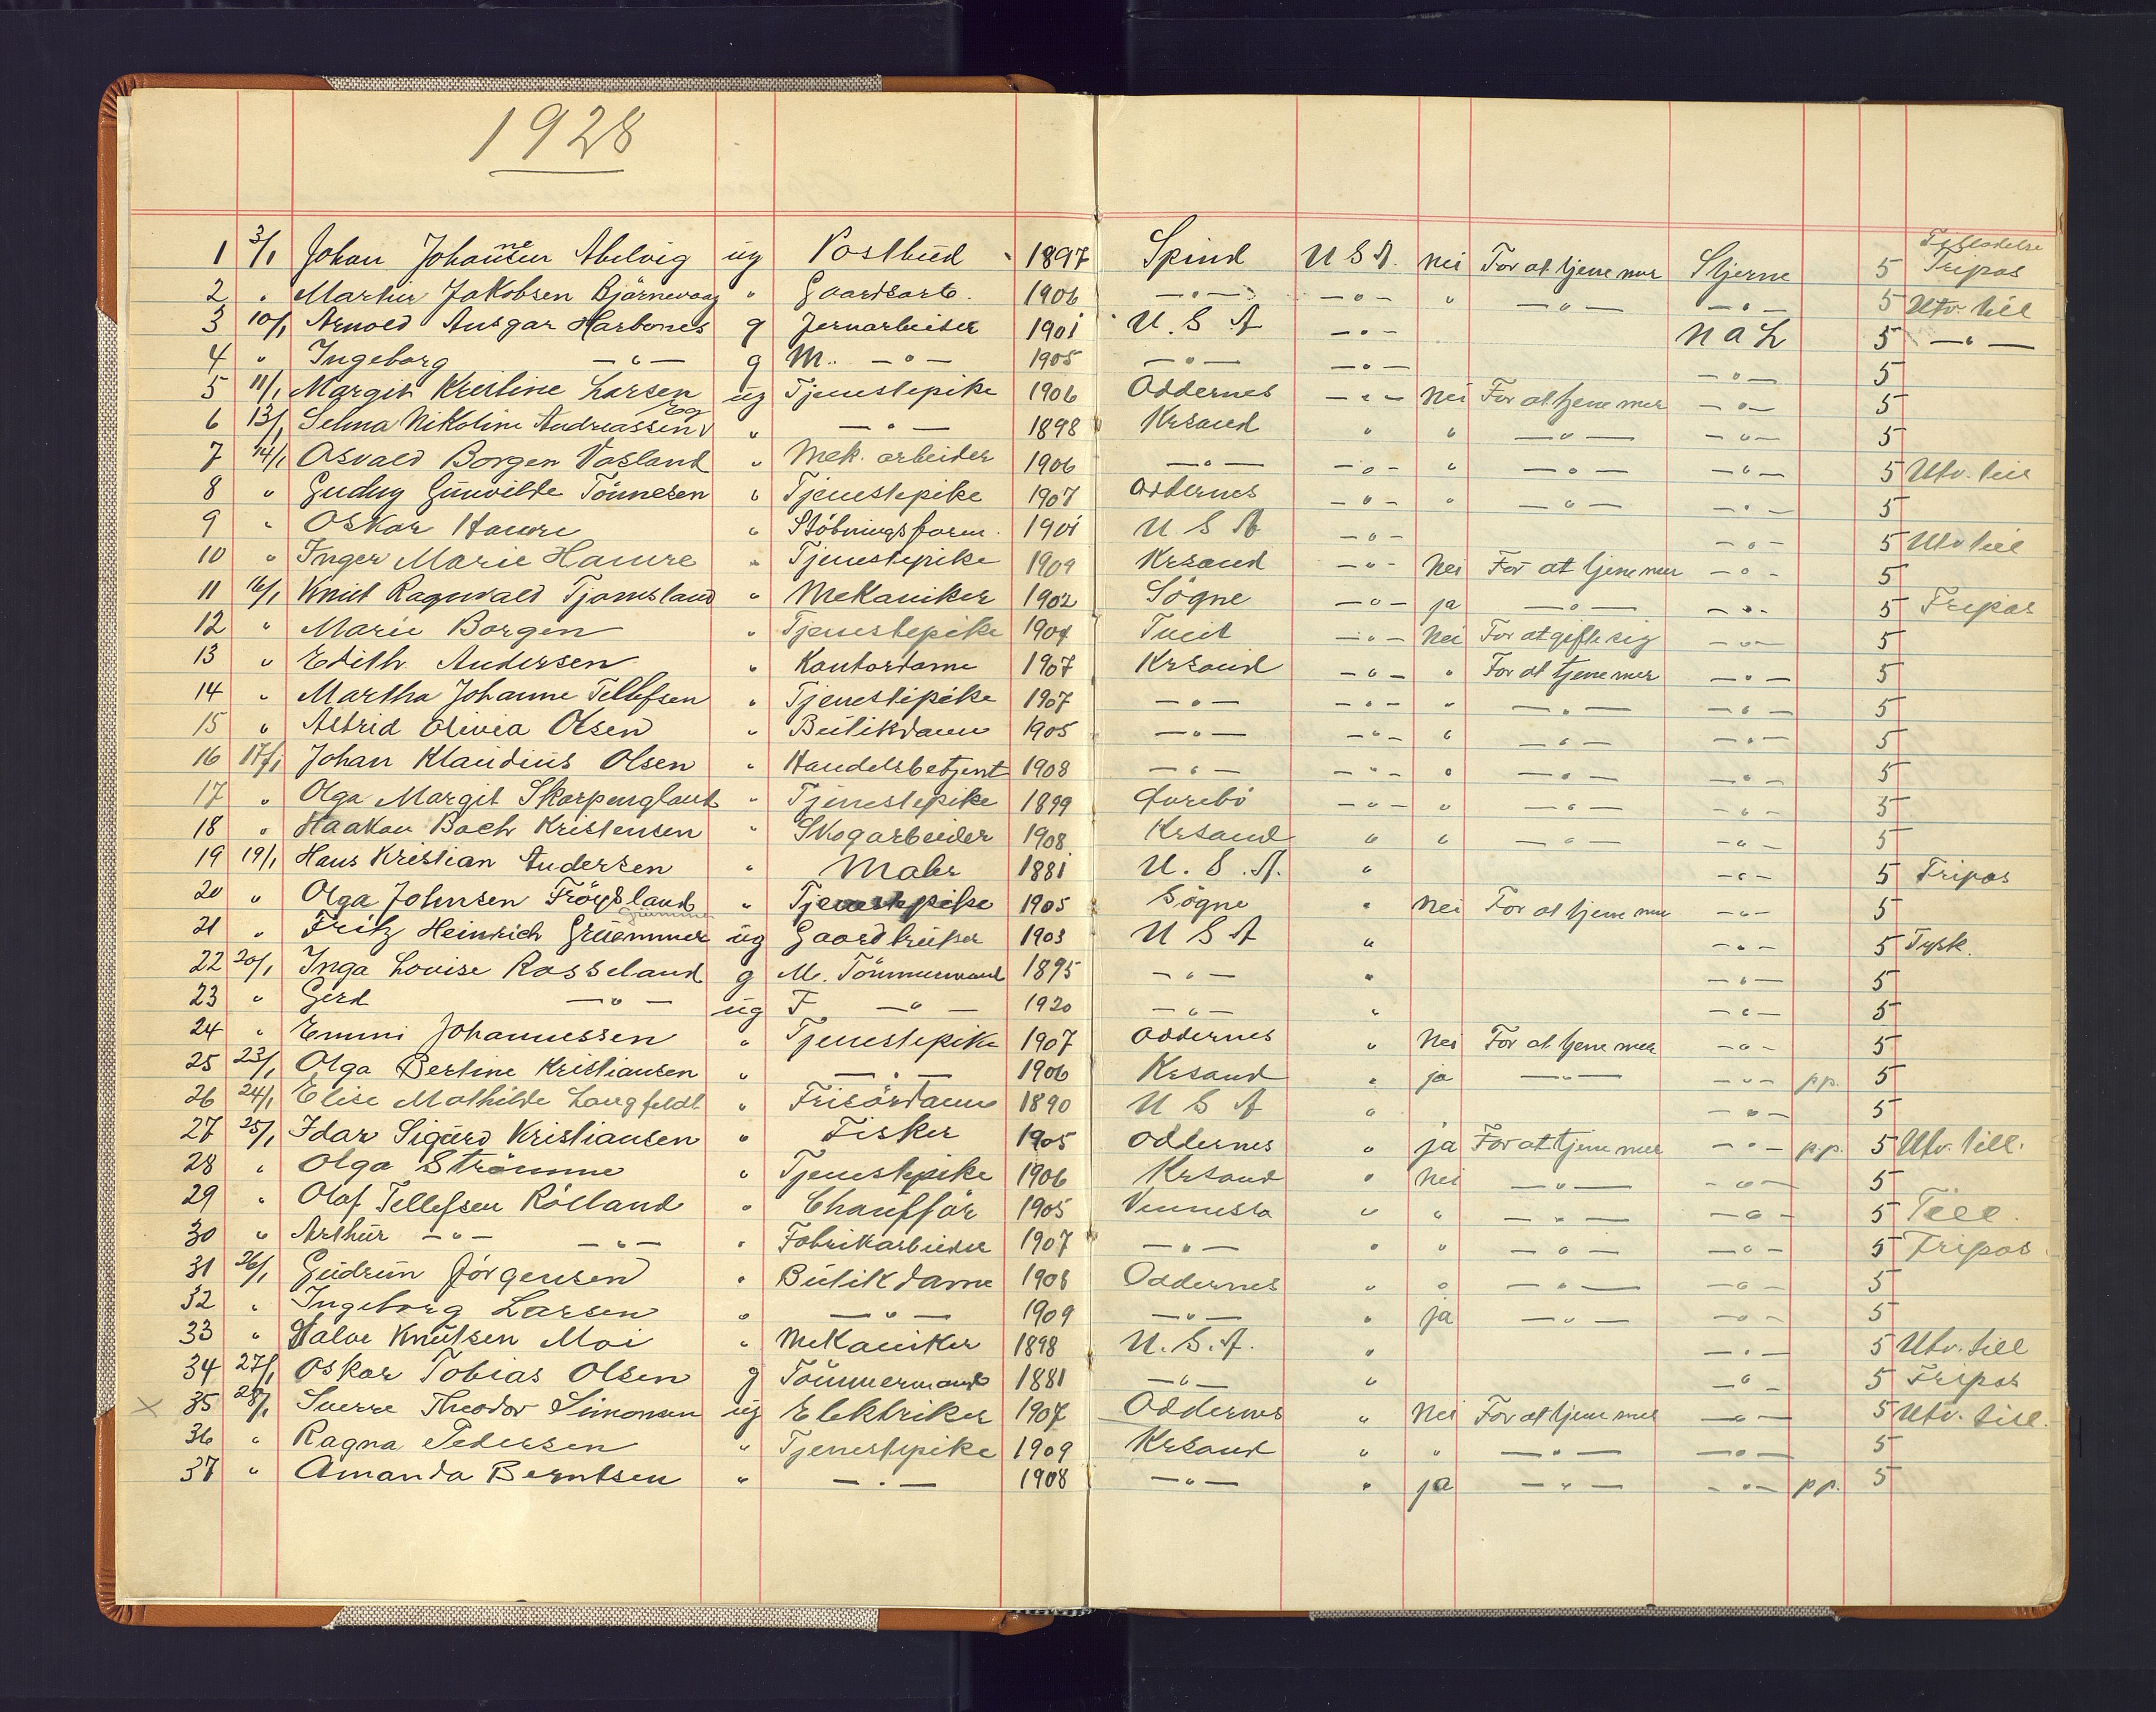 1928
1 3/1 Johan Johannesen Abelvig ug Postbud 1897 Spind U S A. nei For at tjene mer Stjerne 5 Tripos
2 " Martin Jakobsen Bjärnevaag " Gaardsarb. 1906 —"— —"— " —"— —"— 5 Utv. till
3 10/1 Arnold Ansgar Harbones g Jernarbeider 1901 U. S A —"— N a L 5 —"—
4 " Ingeborg —"— g M.. —"— 1905 —"— —"— —"— 5
5 11/1 Margit Kristine Larsen ug Tjenestepike 1906 Oddernes —"— Nei For at tjene mer —"— 5
6 13/1 Selma Nikoline Andreassen Eg " —"— 1898 Krsand " " —"— —"— 5
7 14/1 Osvald Borgen Vasland " Mek. arbeider 1906 —"— —"— " —"— —"— 5 Utv. till
8 " Gudny Gunvilde Tönnesen " Tjenestepike 1907 Oddernes —"— " —"— —"— 5
9 " Oskar Hamre " Stöbningsform. 1901 U S A —"— —"— 5 Utv till
10 " Inger Marie Hamre " Tjenestepike 1909 Krsand —"— Nei For at tjene mer —"— 5
11 16/1 Knut Ragnvald Tjomsland " Mekaniker 1902 Sögne —"— ja —"— —"— 5 Tripos
12 " Marie Borgen " Tjenestepike 1904 Tveit —"— Nei For at gifte sig —"— 5
13 " Edith Andersen " Kontordame 1907 Krsand —"— " For at tjene mer —"— 5
14 " Martha Johanne Tellefsen " Tjenestepike 1907 —"— —"— " —"— —"— 5
15 " Astrid Olivia Olsen " Butikdame 1905 —"— —"— " —"— —"— 5
16 17/1 Johan Klaudius Olsen " Handelsbetjent 1908 —"— —"— " —"— —"— 5
17 " Olga Margit Skarpengland " Tjenestepike 1899 Övrebö —"— " —"— —"— 5
18 " Haakon Bach Kristensen " Skogarbeider 1908 Krsand " " —"— —"— 5
19 19/1 Hans Kristian Andersen " Maler 1881 U. S. A. " —"— 5 Tripos
20 " Olga Johnsen Fröysland " Tjenestepike 1905 Sögne " Nei For at tjene mer —"— 5
21 " Fritz Heinrich Gruemmer ug Gaardbruker 1903 U S A " —"— 5 Tysk.
22 20/1 Inga Lovise Rosseland g M. Tömmermand 1895 —"— " —"— 5
23 " Gerd —"— ug F —"— 1920 —"— " —"— 5
24 " Emmi Johannessen " Tjenestepike 1907 Oddernes " Nei For at tjene mer —"— 5
25 23/1 Olga Bertine Kristiansen " —"— 1906 Krsand " ja —"— —"— pp. 5
26 24/1 Elise Mathilde Langfeldt " Frisördame 1890 U S A " —"— 5
27 25/1 Idar Sigurd Kristiansen " Fisker 1905 Oddernes " ja For at tjene mer —"— pp. 5 Utv. till.
28 " Olga Strömme " Tjenestepike 1906 Krsand " Nei —"— —"— 5
29 " Olaf Tellefsen Rölland " Chauffär 1905 Vennesla " " —"— —"— 5 Till.
30 " Arthur —"— —"— " Fabrikarbeider 1907 —"— " " —"— —"— 5 Tripos.
31 26/1 Gudrun Jörgensen " Butikdame 1908 Oddernes " " —"— —"— 5
32 " Ingeborg Larsen " —"— 1909 —"— " ja —"— —"— 5
33 " Halvor Knutsen Moi " Mekaniker 1898 U. S. A. " —"— 5 Utv. till
34 27/1 Oskar Tobias Olsen g Tömmermand 1881 —"— " —"— 5 Tripos
x 35 28/1 Sverre Theodor Simonsen ug Elektriker 1907 Oddernes " Nei For at tjene mer —"— 5 Utv. till.
36 " Ragna Pedersen " Tjenestepike 1909 Krsand " " —"— —"— 5
37 " Amanda Berntsen " —"— 1908 —"— " ja —"— —"— pp. 5